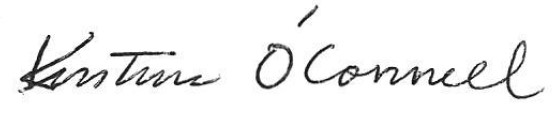 Kirstine O'Connell